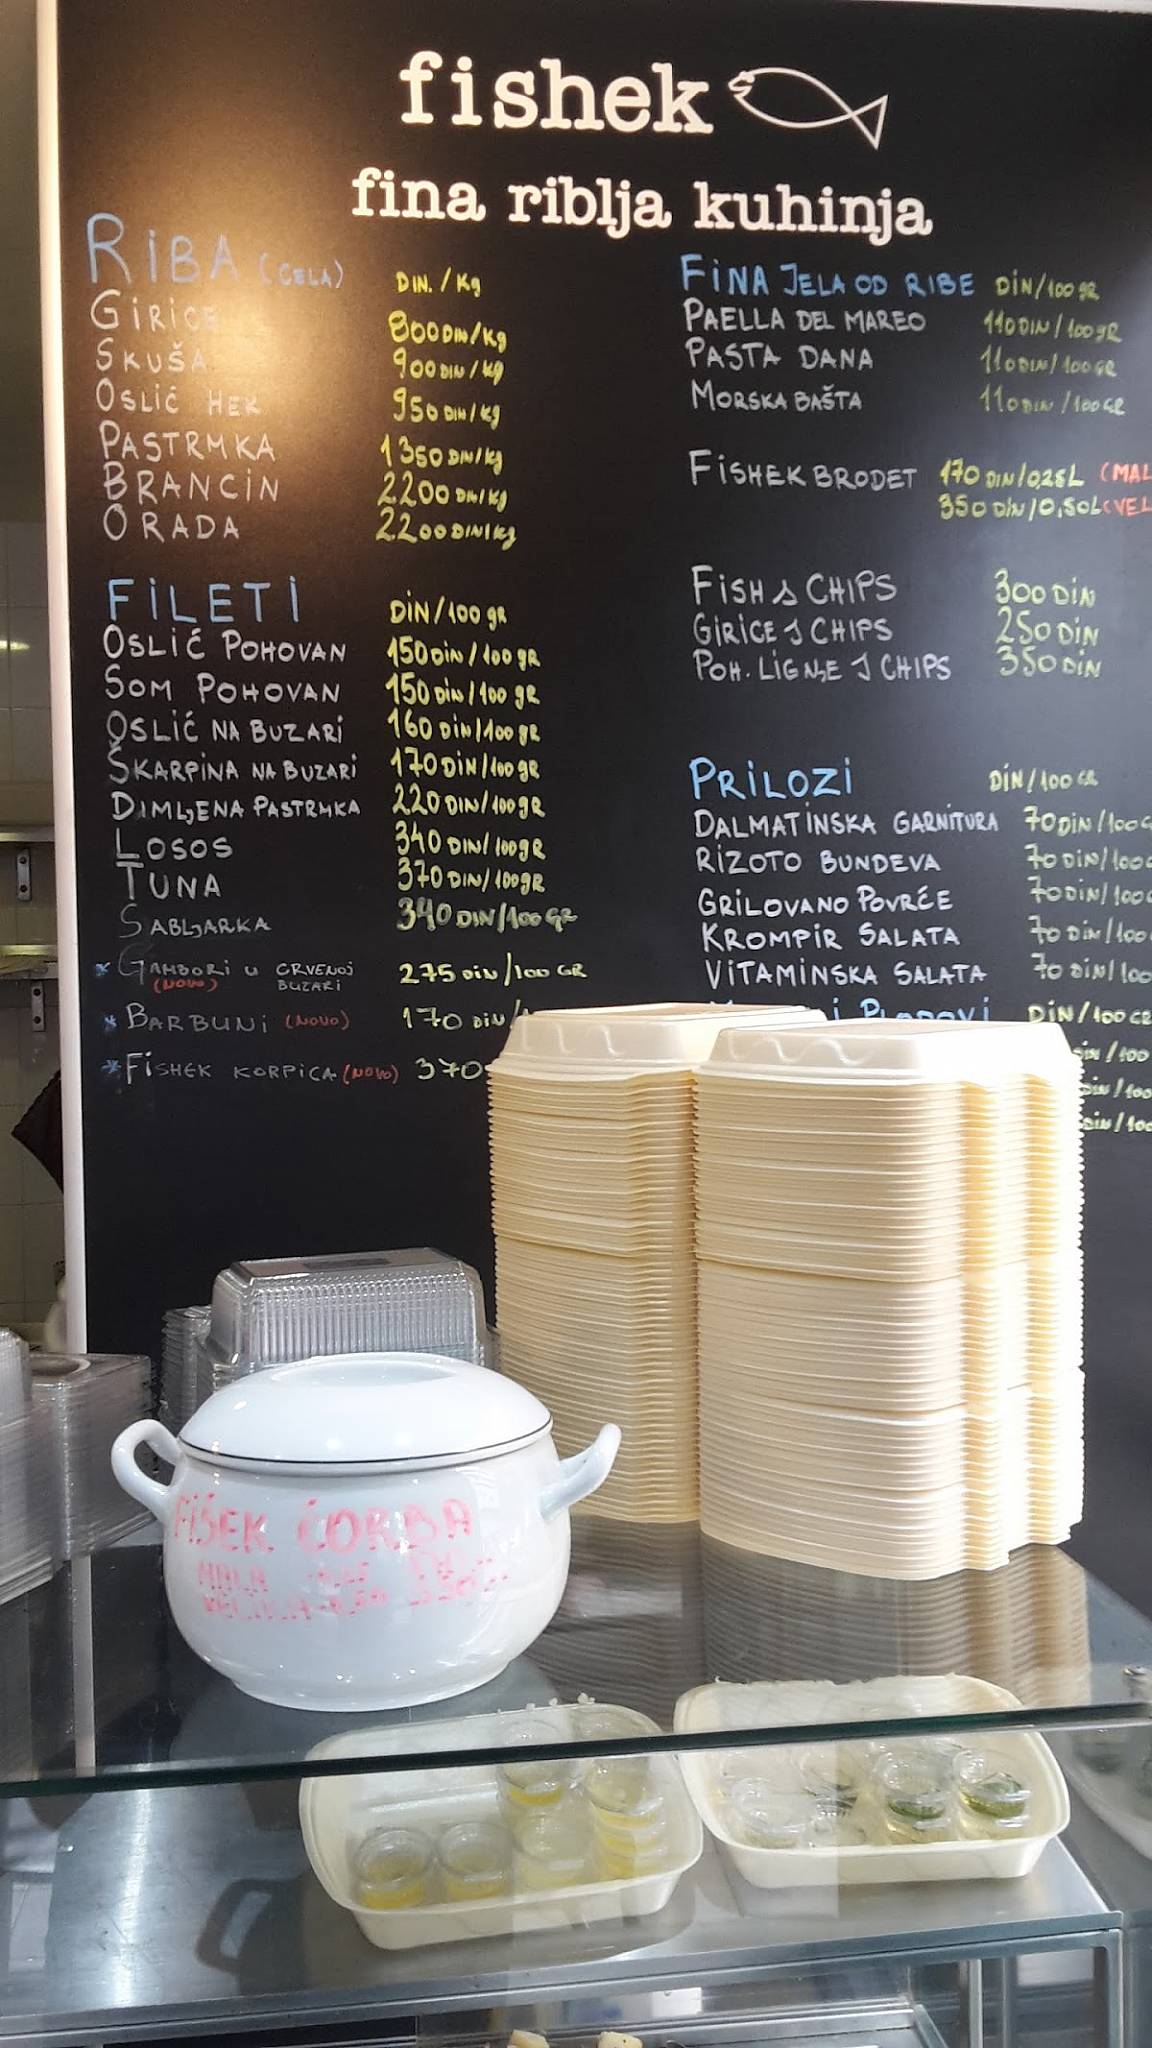 fishek
fina riblja kuhinja
RIBA (CELA) DIN./Kg
GIRICE 800 DIN/Kg
SKUŠA 900 DIN/Kg
OSLIĆ HEK 950 DIN/Kg
PASTRMKA 1350 DIN/Kg
BRANCIN 2200 DIN/Kg
ORADA 2200 DIN/Kg
FILETI DIN/100 gR
OSLIĆ POHOVAN 150 DIN/100 gR
SOM POHOVAN 150 DIN/100 gR
OSLIĆ NA BUZARI 160 DIN/100 gR
ŠKARPINA NA BUZARI 170 DIN/100 gR
DIMLJENA PASTRMKA 220 DIN/100 gR
LOSOS 340 DIN/100 gR
TUNA 370 DIN/100 gR
SABLJARKA 340 DIN/100 GR
* GAMBORI U CRVENOJ 275 DIN/100 GR
(NOVO) BUZARI
* BARBUNI (NOVO) 170 DIN/
* FISHEK KORPICA (NOVO) 370
FINA JELA OD RIBE DIN/100 gR
PAELLA DEL MAREO 110 DIN/100 gR
PASTA DANA 110 DIN/100 GR
MORSKA BAŠTA 110 DIN/100 GR
FISHEK BRODET 170 DIN/0,25L (MAL
350 DIN/0,50L (VEL
FISH & CHIPS 300 DIN
GIRICE & CHIPS 250 DIN
POH. LIGNJE & CHIPS 350 DIN
PRILOZI DIN/100 GR
DALMATINSKA GARNITURA 70 DIN/100 G
RIZOTO BUNDEVA 70 DIN/100
GRILOVANO POVRĆE 70 DIN/100
KROMPIR SALATA 70 DIN/100
VITAMINSKA SALATA 70 DIN/100
DIN/100 GR
DIN/100
DIN/100
DIN/100
FIŠEK ČORBA
MALA
VELIKA